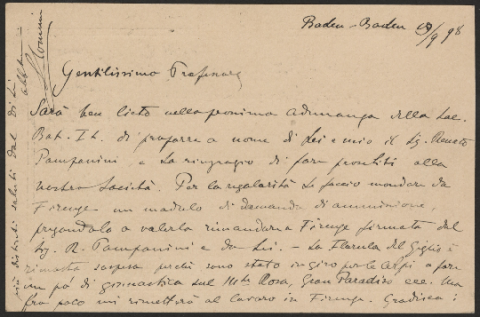 Baden-Baden 9/9 98
Gentilissimo Professore
Sarò ben lieto nella prossima adunanza della Soc.
Bot. It. di proporre a nome di Lei e mio il Sig. Renato
Pampanini e La ringrazio di fare proseliti alla
nostra Società. Per la regolarità Le faccio mandare da
Firenze un modulo di domanda di ammissione,
pregandola a volerlo rimandare a Firenze firmato dal
Sig. R. Pampanini e da Lei. - La Florula del Giglio è
rimasta sospesa perchè sono stato in giro per le Alpi a fare
un pó di ginnastica sul Mte Rosa, Gran Paradiso ecc. Ma
fra poco mi rimetterò al lavoro in Firenze. Gradisca i
più distinti saluti dal di Lei
obbl.
Sommier